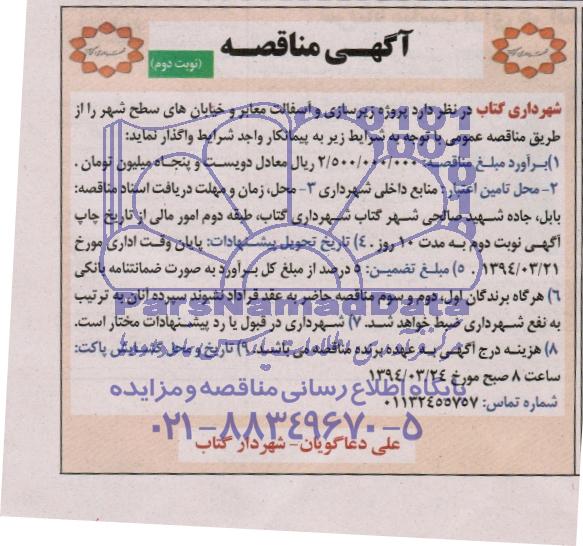 آگهـی مناقصـه
(نوبت دوم)
شهرداری گتاب در نظر دارد پروژه زیرسازی و آسفالت معابر و خیابان های سطح شهر را از
طریق مناقصه عمومی با توجه به شرایط زیر به پیمانکار واجد شرایط واگذار نماید:
۱)برآورد مبلغ مناقصـه: ۲/۵۰۰/۰۰۰/۰۰۰ ریال معادل دویست و پنجاه میلیون تومان .
۲- محل تامین اعتبار: منابع داخلی شهرداری ۳- محل، زمان و مهلت دریافت اسناد مناقصه:
بابل، جاده شـهید صالحی شـهر گتاب شـهرداری گتاب، طبقه دوم امور مالی از تاریخ چاپ
آگهـی نوبت دوم بـه مدت ۱۰ روز . ۴) تاریخ تحویل پیشـنهادات: پایان وقـت اداری مورخ
۱۳۹۴/۰۳/۲۱ . ۵) مبلـغ تضمیـن: ۵ درصد از مبلغ کل بـرآورد به صورت ضمانتنامه بانکی
۶) هرگاه برندگان اول، دوم و سوم مناقصه حاضر به عقد قراداد نشوند سپرده آنان به ترتیب
به نفع شهرداری ضبط خواهد شـد. ۷) شـهرداری در قبول یا رد پیشـنهادات مختار است.
۸) هزینـه درج آگهـی بـه عهده برنده مناقصه می باشـد. ۹) تاریخ و محل گشـایش پاکت:
ساعت ۸ صبح مورخ ۱۳۹۴/۰۳/۲۴
شماره تماس: ۰۱۱۳۲۴۵۵۷۵۷
علی دعاگویان- شهردار گتاب
ParsNamadData
پایگاه اطلاع رسانی مناقصه و مزایده
۰۲۱-۸۸۳۴۹۶۷۰-۵